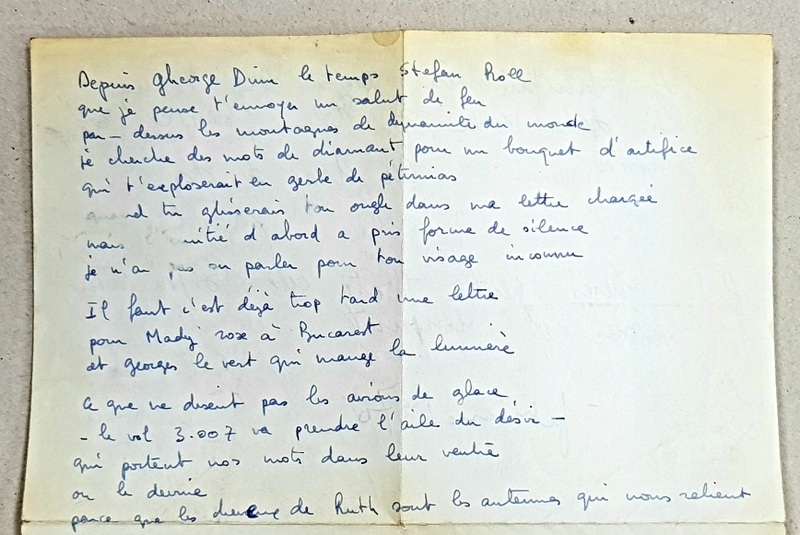 Depuis Gheorge Dinu le temps Stefan Roll
que je pense t'envoyer un salut de feu
par-dessus les montagnes de dynamite du monde
je cherche des mots de diamant pour un bouquet d'artifice
qui t'exploserait en gerbe de pétunias
quand tu glisserais ton ongle dans ma lettre chargée
mais d'abord a pris forme de silence
je n'ai pas su parler pour ton visage inconnu
Il faut c'est déjà trop tard une lettre
pour Mady rose à Bucarest
et georges le vert qui mange la lumière
Ce que ne disent pas les avions de glace
– le vol 3.007 va prendre l'aile du désir –
qui portent nos mots dans leur ventre
on le devine
parce que les cheveux de Ruth sont les antennes qui nous relient